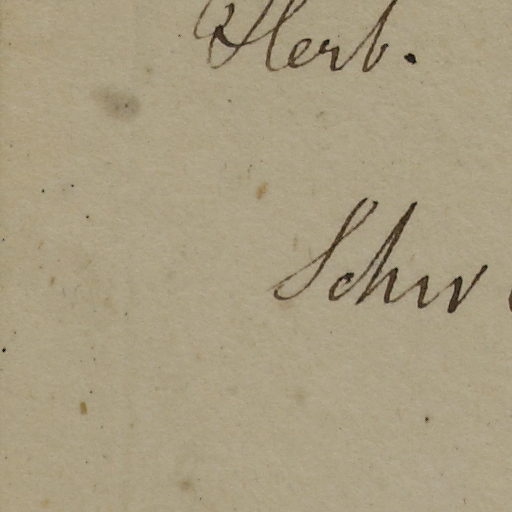 Herb.
Schw